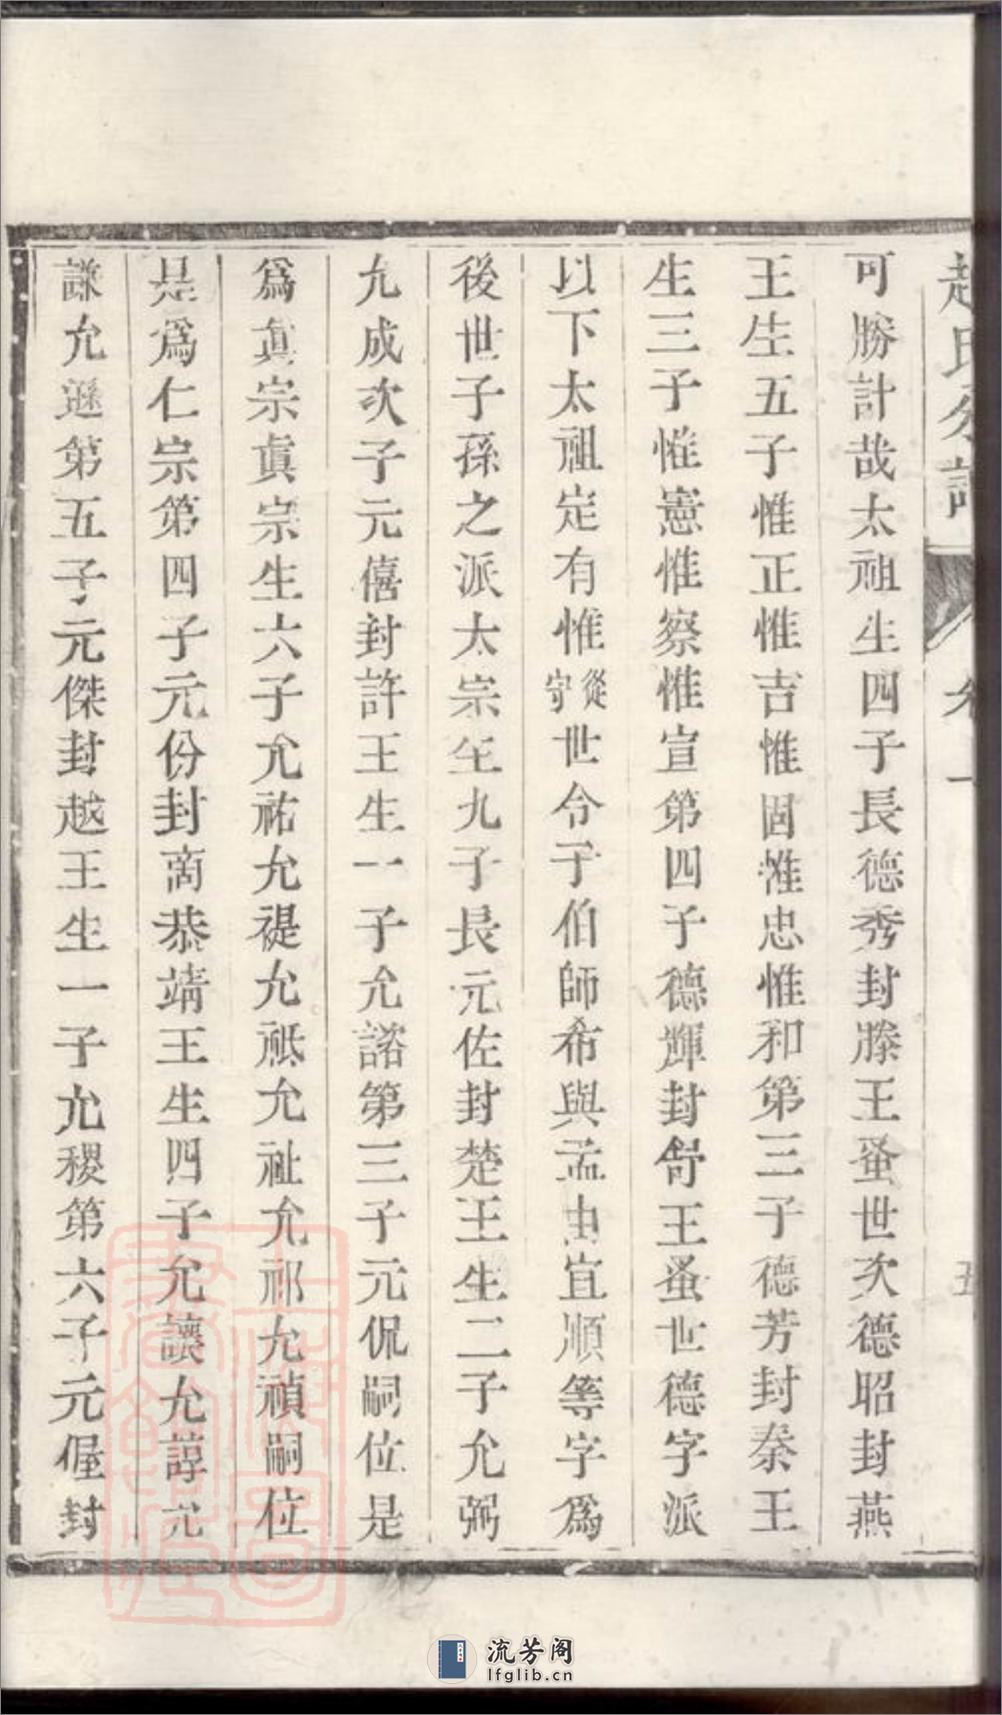 可勝計哉太祖生四子長德秀封滕王蚤世次德昭封燕
王生五子惟正惟吉惟固惟忠惟和第三子德芳封秦王
生三子惟憲惟察惟宣第四子德輝封舒王蚤世德字派
以下太祖定有惟從守世令子伯師希與孟由宜順等字為
後世子孫之派太宗生九子長元佐封楚王生二子允弼
允成次子元僖封許王生一子允諮第三子元侃嗣位是
為真宗眞宗生六子允祐允禔允祗允祉允祁允禎嗣位
是為仁宗第四子元份封商恭靖王生四子允讓允諄允
謙允遜第五子元傑封越王生一子允稷第六子元偓封
趙氏
五
流芳阁
lfglib.cn